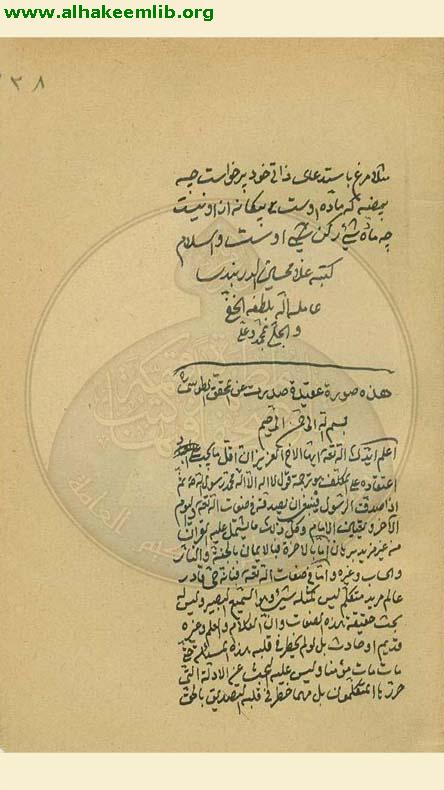 www.alhakeemlib.org
٢٣٨
مثلا مرغ باستدعای ذاتی خود برخواست چه
بیضه که ماده اوست بیگانه از او نیست
چه ماده شیء رکن شیء اوست والسلام
کتبه غلام
عامله الله بلطفه الخفی
والجلی بمحمد وعلی
هذه صورة عقیدة صدرت عن المحقق الطوسی
بسم الله الرحمن الرحیم
اعلم ایدک الله تعالی ایها الاخ العزیز ان اقل ما یجب
اعتقاده علی المکلف هو ترجمة قول لا اله الا الله محمد رسول الله ثم
اذا صدق الرسول فینبغی ان یصدقه فی صفات الله تعالی والیوم
الاخر وتعیین الامام وکل ذلک مما یشتمل علیه القرآن
من غیر مزید برهان اما بالاخرة فبالایمان بالجنة والنار
والحساب وغیره واما فی صفات الله تعالی فبانه حی قادر
عالم مرید متکلم لیس کمثله شیء وهو السمیع البصیر ولیس له
بحث حقیقة هذه الصفات وان الکلام والعلم وغیره
قدیم او حادث بل لو لم یخطر فی قلبه هذه المسئلة حتی
مات مات مؤمنا ولیس علیه البحث عن الادلة التی
حررها المتکلمون بل مهما خطر فی قلبه التصدیق بالحق